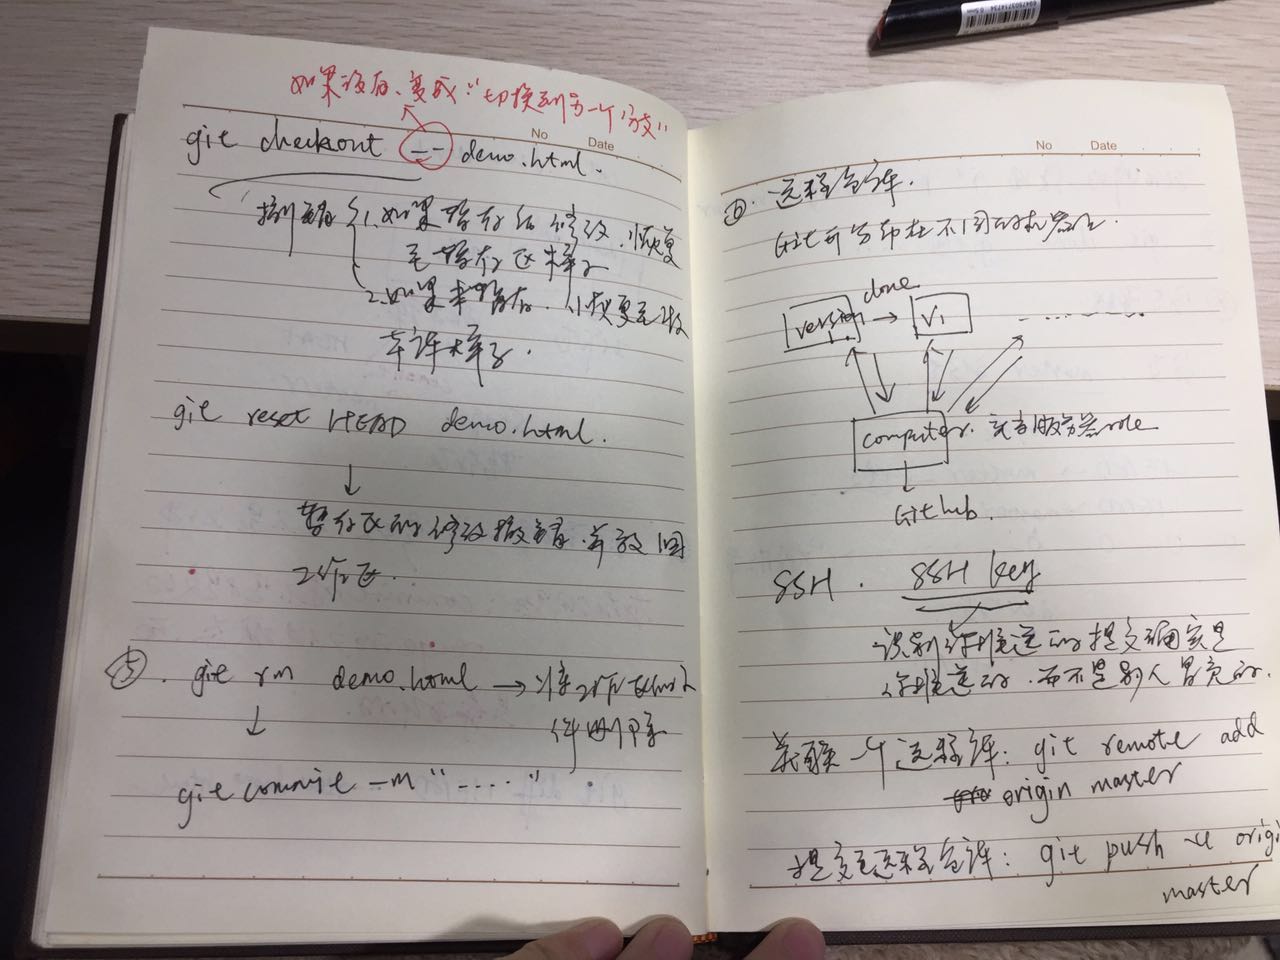 如果没有、变成:"切换到另一个分支"
No Date
git checkout -- demo.html.
撤销 1. 如果暂存后修改,恢复
至暂存区样子
2. 如果未暂存.恢复至版
本库样子.
git reset HEAD demo.html.
↓
暂存区的修改撤销.并放回
工作区.
⑤. git rm demo.html → 将工作区的文
件删除
↓
git commit -m "...."
No Date
⑥. 远程仓库.
Git可分布在不同的机器上.
clone
version 1. → V1 ------
computer. 充当服务器role
↓
GitHub.
SSH. SSH key
识别你推送的提交确实是
你推送的.而不是别人冒充的.
关联一个远程库: git remote add
origin master
提交至远程仓库: git push -u origi
master
0.5mm